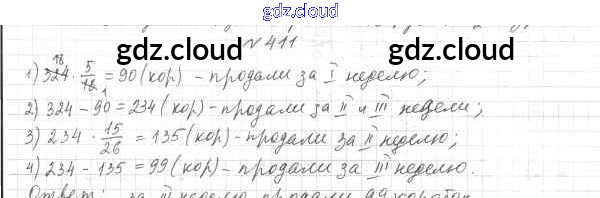 gdz.cloud
№ 411
gdz.cloud gdz.cloud
1) 324 · 5/18 = 90 (кор) - продали за I неделю;
2) 324 - 90 = 234 (кор) - продали за II и III недели;
3) 234 · 15/26 = 135 (кор) - продали за II неделю;
4) 234 - 135 = 99 (кор) - продали за III неделю.
gdz.cloud gdz.cloud
Ответ: за III неделю продали 99 коробок